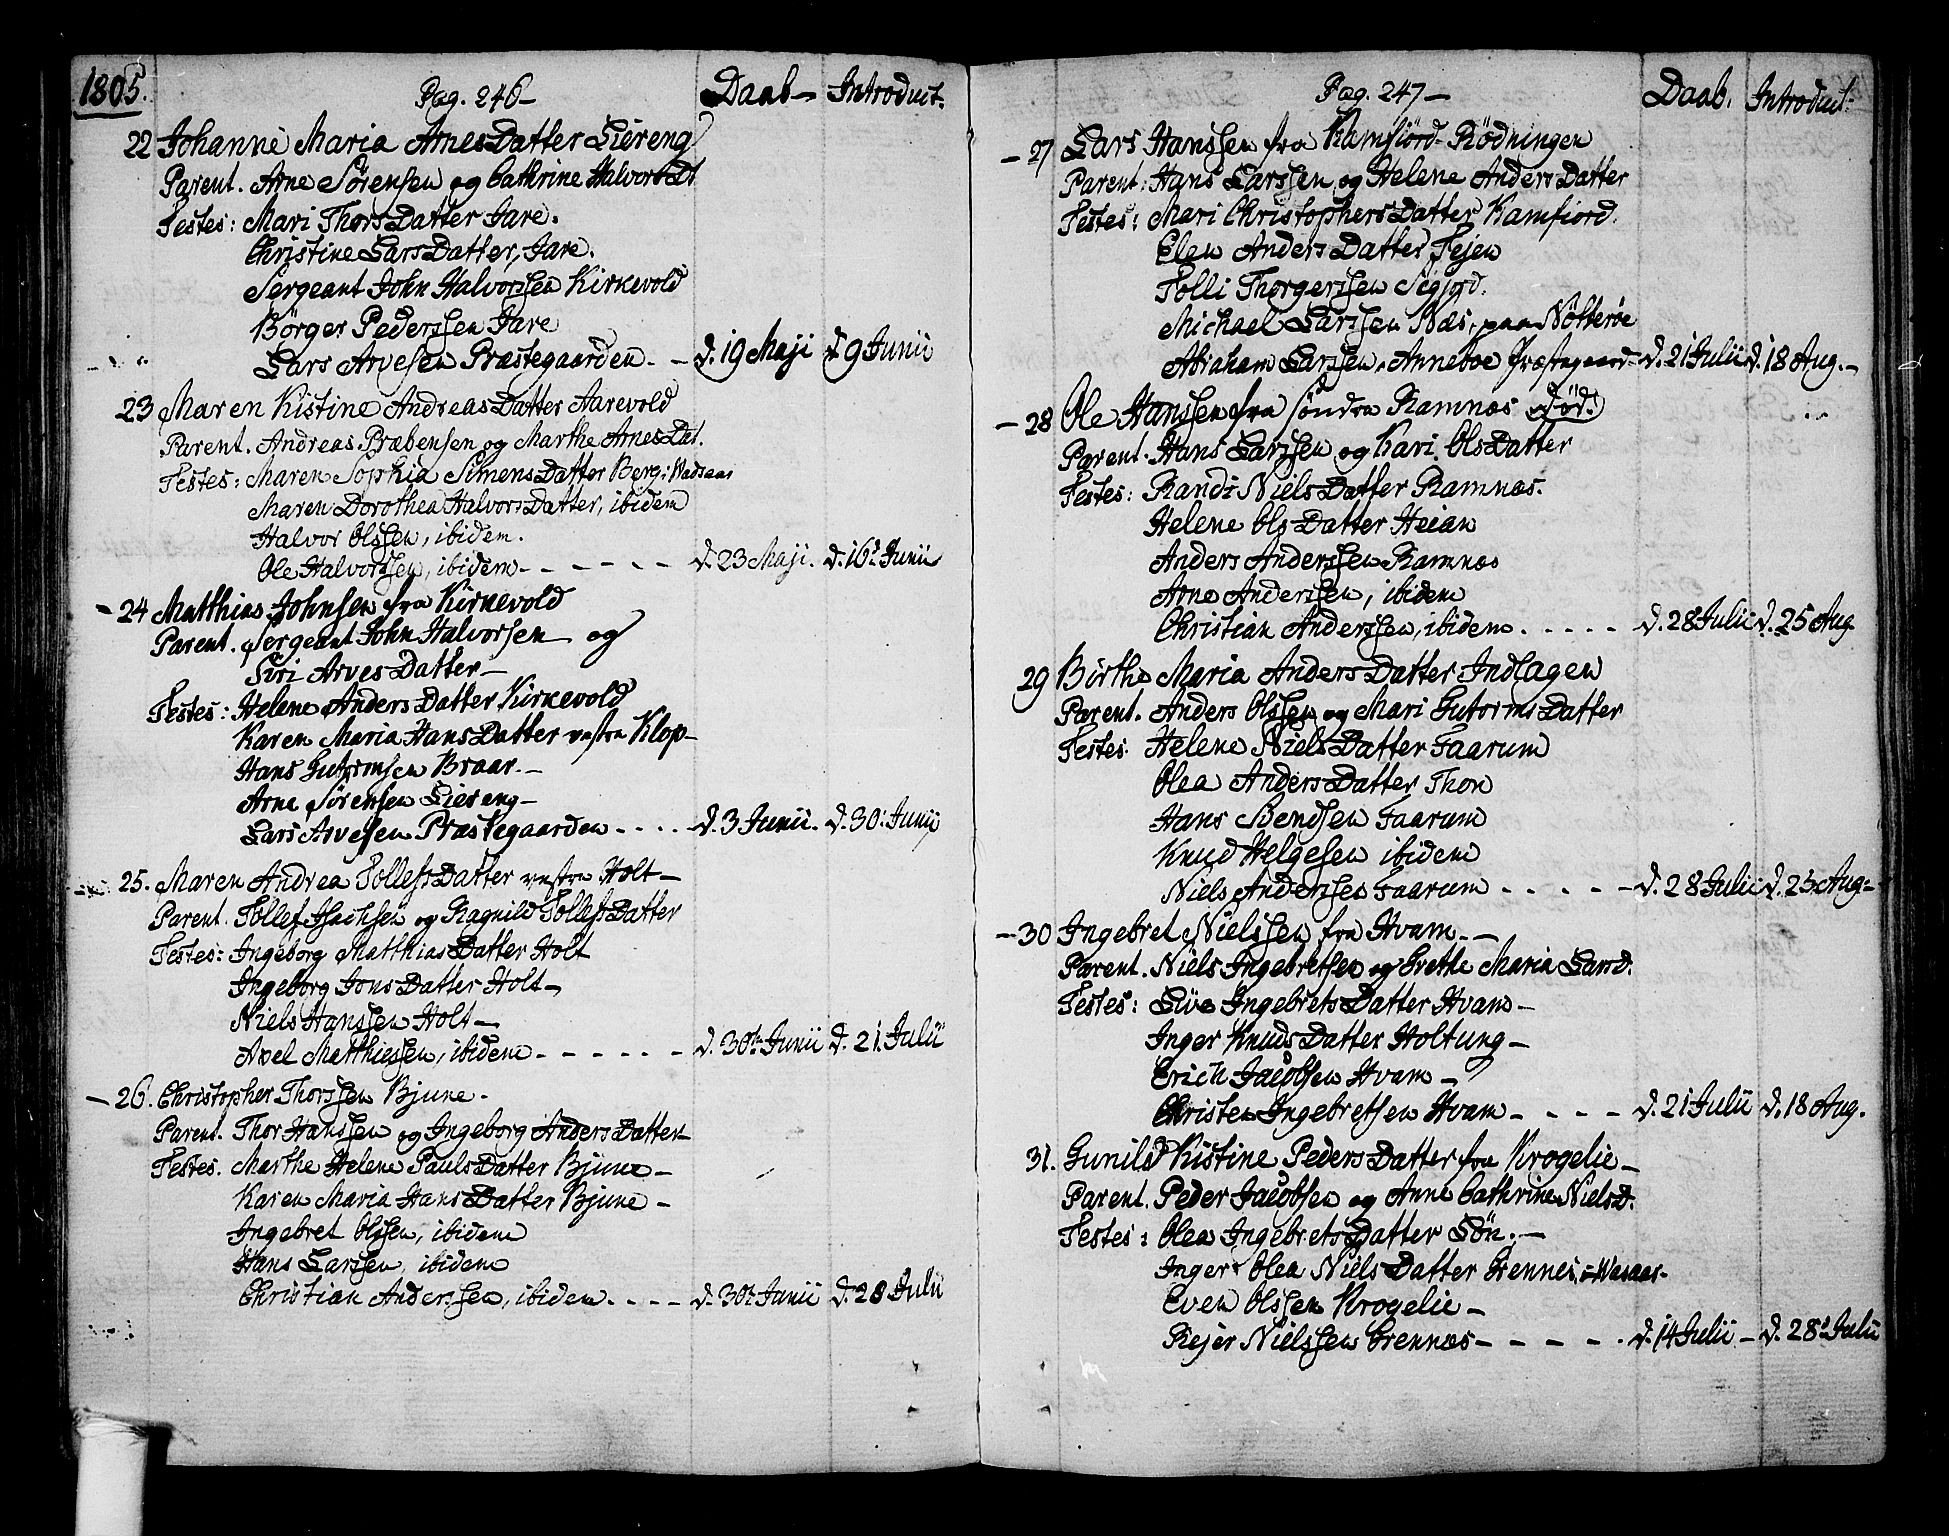 1805.
Pag. 246-
Daab-
Introduct.
22 Johanne Maria ArnesDatter Liereng
Parent. Arne Sörensen og Cathrine HalvorsDt
Testes: Mari ThorsDatter Jare.
Christine LarsDatter, Jare.
Sergeant John Halvorssen Kirkevold
Börger Pederssen Jare
Lars Arvesen Præstegaarden. - d. 19 Maji d. 9 Junii
23 Maren Kistine AndreasDatter Aarevold
Parent. Andreas Præbensen og Marthe ArnesDat.
Testes: Maren Sophia SimensDatter Berg: Wadsaas
Maren Dorothea HalvorsDatter, ibidem
Halvor Olssen, ibidem.
Ole Halvorssen, ibidem - - - - - - d. 23 Maji. d. 16d Junii
- 24 Matthias Johnsen fra Kirkevold
Parent. Sergeant John Halvorsen og
Siri ArvesDatter-
Testes: Helene AndersDatter Kirkevold
Karen Maria HansDatter vestre Klop-
Hans Gutormsen Braar.-
Arne Sörensen Liereng-
Lars Arvesen Præstegaarden . . . . d. 3 Junii. d. 30. Junii
25. Maren Andrea TollefsDatter vestre Holt-
Parent. Tollef Isachsen og Ragnild TollefsDatter
Testes: Ingeborg MatthiasDatter Holt
Ingeborg JonsDatter Holt-
Niels Hanssen Holt-
Axel Matthiessen, ibidem - - - - - - d. 30te Junii d. 21. Julii
- 26. Christopher Thorssen Bjune.
Parent. Thor Hanssen og Ingeborg AndersDatter-
Testes. Marthe Helene PaulsDatter Bjune-
Karen Maria HansDatter Bjune-
Ingebret Olssen, ibidem
Hans Larssen, ibidem
Christian Anderssen, ibidem. . - - - d. 30t Junii d. 28 Julii
Pag. 247-
Daab.
Introduct:
- 27 Lars Hanssen fra Ramfiord-Rödningen
Parent: Hans Larssen og Helene AndersDatter
Testes: Mari ChristophersDatter Kamfiord.
Elen AndersDatter Tejen
Tolli Thorgerssen Segjord.
Michael Larssen Næs, paa Nötteröe
Abraham Larssen, Anneboe Præstegaard- d. 21 Julii d. 18 Aug.-
- 28 Ole Hanssen fra söndre Ramnæs död.
Parent. Hans Larssen og Kari OlsDatter
Testes: Randi NielsDatter Ramnæs.
Helene OlsDatter Heian
Anders Anderssen Ramnæs
Arne Anderssen, ibidem
Christian Anderssen, ibidem. . . . . d. 28 Julii d. 25 Aug
29 Birthe Maria AndersDatter Indlagen
Parent. Anders Olssen og Mari GutormsDatter
Testes: Helene NielsDatter Faarum
Olea AndersDatter Thon
Hans Bendsen Faarum
Knud Helgesen ibidem
Niels Anderssen Faarum . . . . . - d. 28 Julii d. 25 Aug-
- 30 Ingebret Nielssen fra Hvam. -
Parent. Niels Ingebretsen og Grethe Maria LarsD.
Testes: Live IngebretsDatter Hvam-
Inger KnudsDatter Holtung-
Erich Jacobsen Hvam-
Christen Ingebretsen Hvam - - - - d. 21 Julii d. 18 Aug.
31. Gunild Kistine PedersDatter fra Krogelie-
Parent. Peder Jacobsen og Anne Cathrine NielsD.
Testes: Olea IngebretsDatter Lön.-
Inger Olea NielsDatter Grennes, - Wasaas-
Even Olssen Krogelie-
Rejer Nielssen Grennæs - - - - - . d. 14 Julii - d. 28d Julii